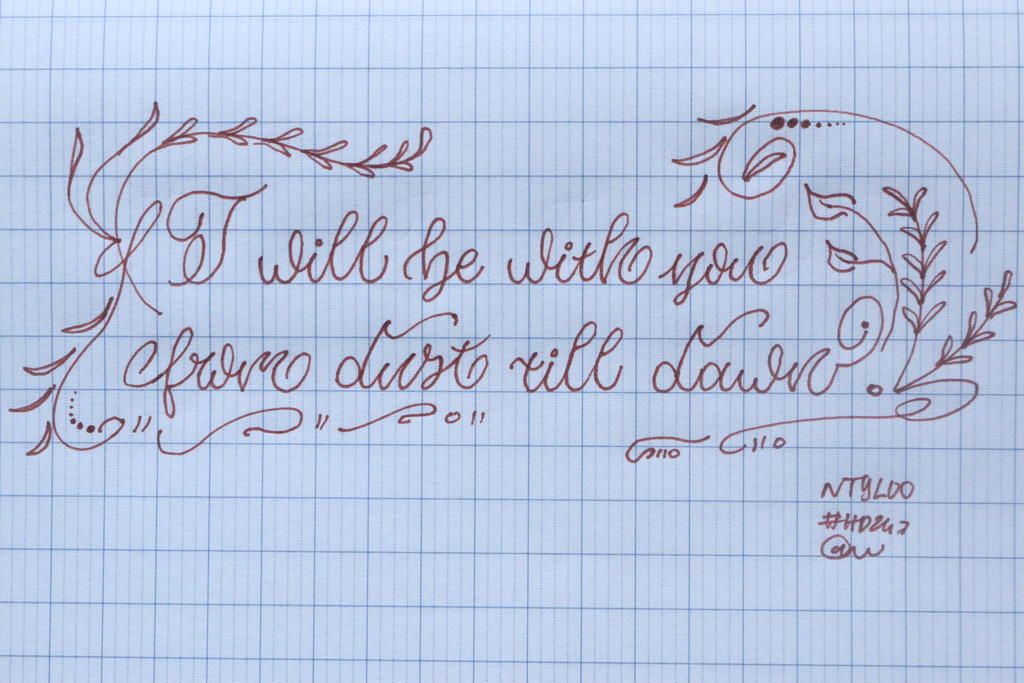 I will be with you
from dust till dawn.
NTYLOO